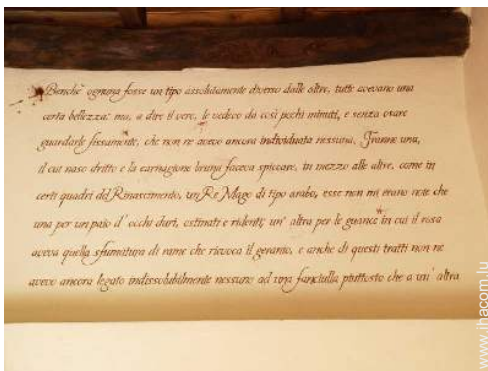 Benchè ognuna fosse un tipo assolutamente diverso dalle altre, tutte avevano una
certa bellezza: ma, a dire il vero, le vedevo da così pochi minuti, e senza osare
guardarle fissamente, che non ne avevo ancora individuata nessuna. Tranne una,
il cui naso dritto e la carnagione bruna faceva spiccare, in mezzo alle altre, come in
certi quadri del Rinascimento, un Re Mago di tipo arabo, esse non mi erano note che
una per un paio d'occhi duri, ostinati e ridenti; un'altra per le guance in cui il rosa
aveva quella sfumatura di rame che rievoca il geranio, e anche di questi tratti non ne
avevo ancora legato indissolubilmente nessuno ad una fanciulla piuttosto che a un'altra
www.ihacom.lu